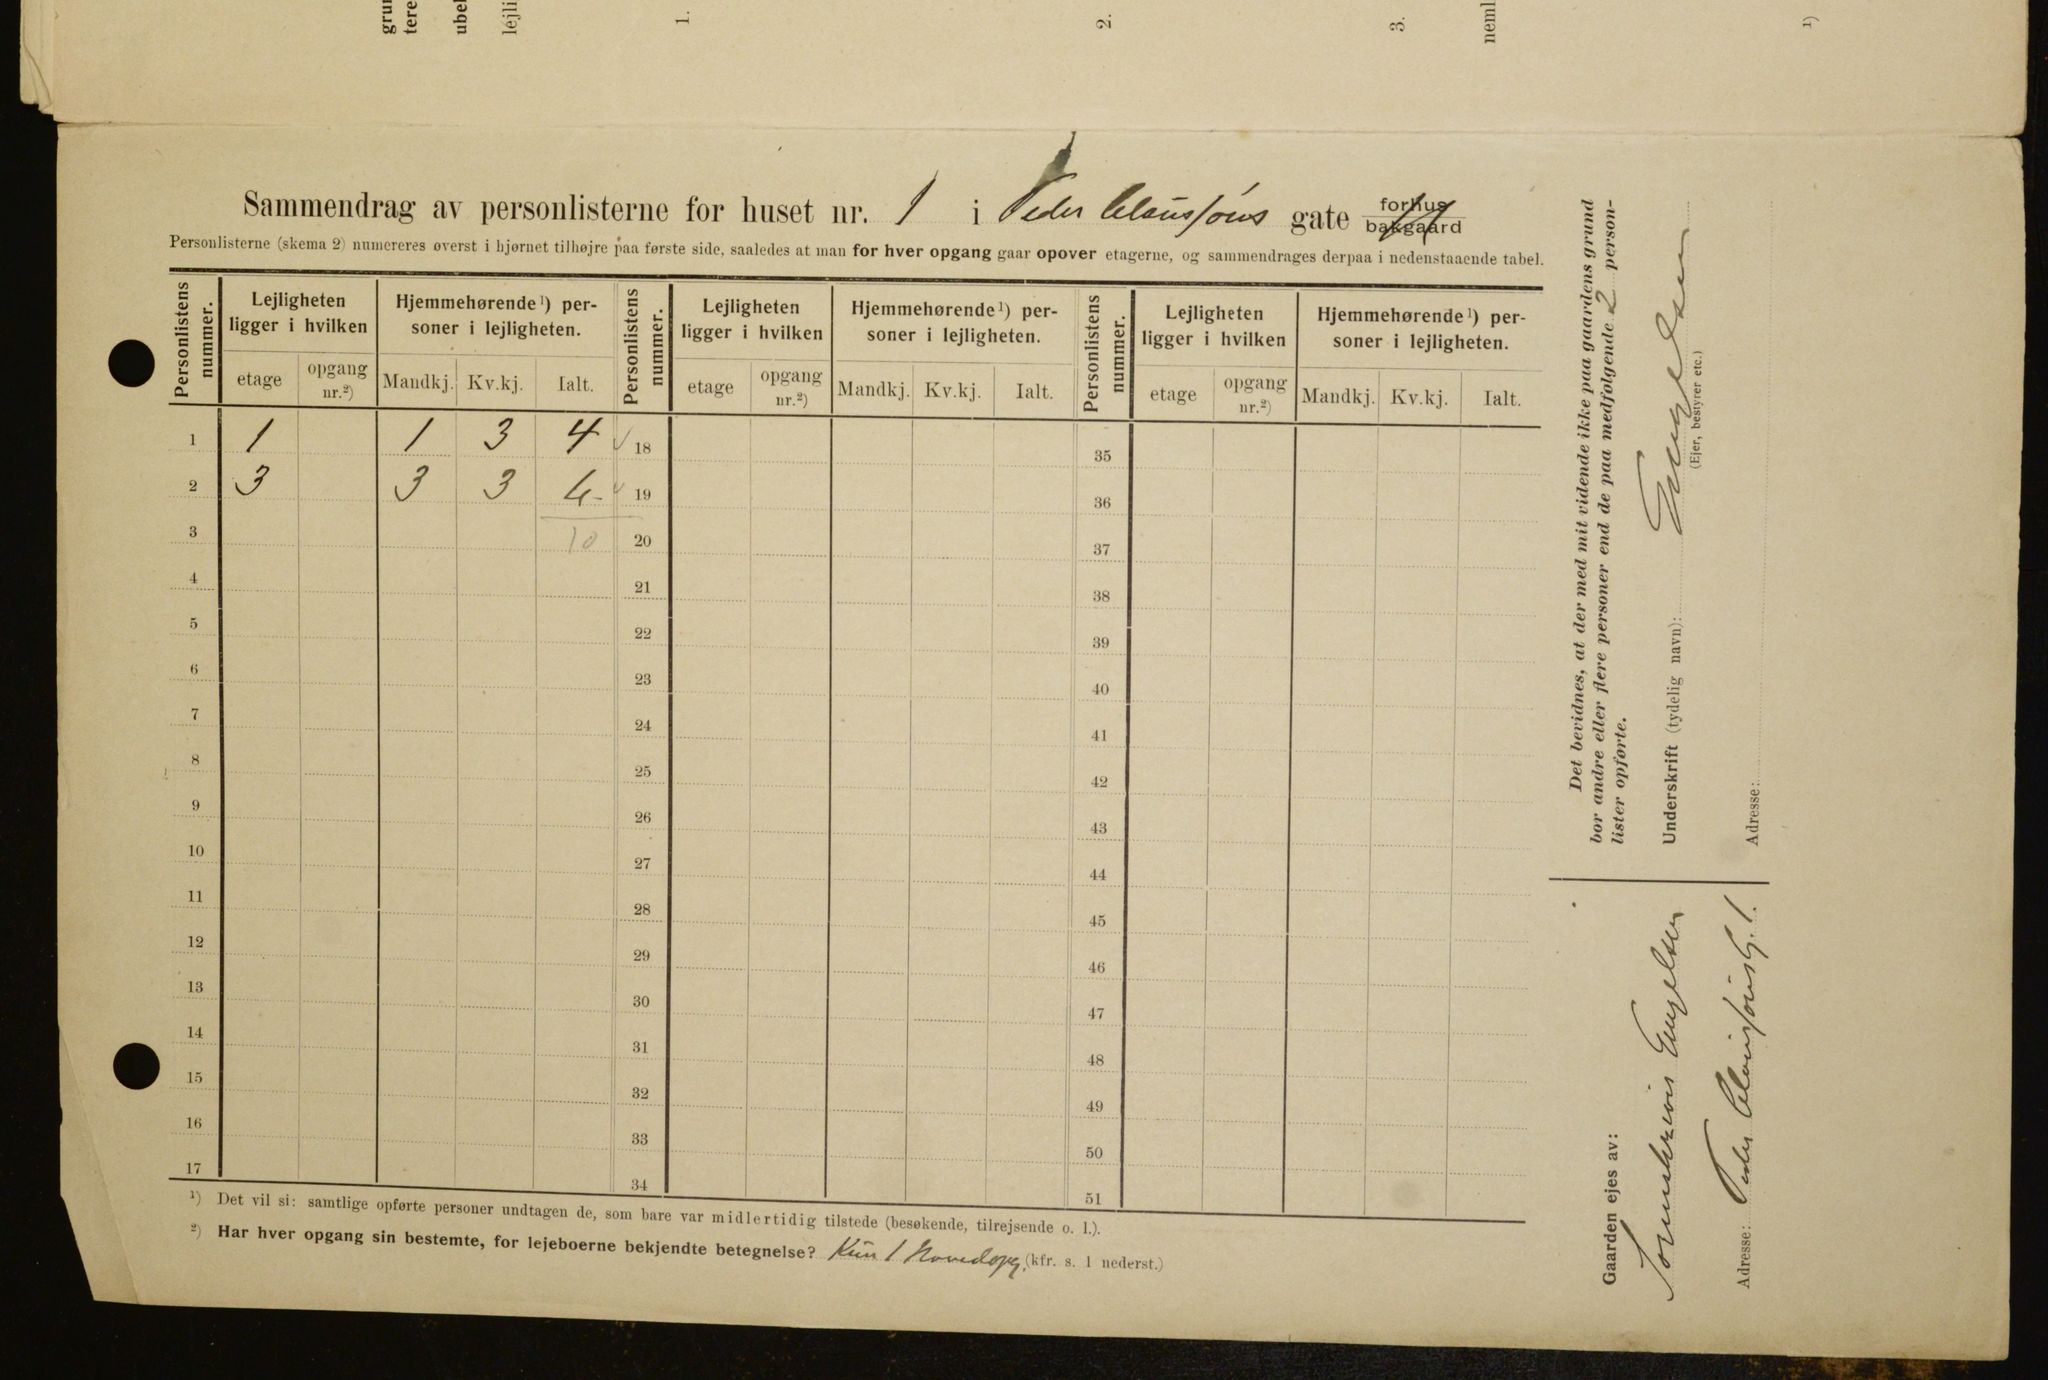 grun
tere
ubel
lejli
1.
2.
3.
neml
¹)
Sammendrag av personlisterne for huset nr. 1 i Peder Claussøns gate forhus bakgaard
Personlisterne (skema 2) numereres øverst i hjørnet tilhøjre paa første side, saaledes at man for hver opgang gaar opover etagerne, og sammendrages derpaa i nedenstaaende tabel.
Personlistens nummer. Lejligheten ligger i hvilken Hjemmehørende ¹) personer i lejligheten. Personlistens nummer. Lejligheten ligger i hvilken Hjemmehørende ¹) personer i lejligheten. Personlistens nummer. Lejligheten ligger i hvilken Hjemmehørende ¹) personer i lejligheten.
etage opgang nr.²) Mandkj. Kv.kj. Ialt. etage opgang nr.²) Mandkj. Kv.kj. Ialt. etage opgang nr.²) Mandkj. Kv.kj. Ialt.
1 1 1 3 4 18 35
2 3 3 3 6 19 36
3 10 20 37
4 21 38
5 22 39
6 23 40
7 24 41
8 25 42
9 26 43
10 27 44
11 28 45
12 29 46
13 30 47
14 31 48
15 32 49
16 33 50
17 34 51
¹) Det vil si: samtlige opførte personer undtagen de, som bare var midlertidig tilstede (besøkende, tilrejsende o. l.).
²) Har hver opgang sin bestemte, for lejeboerne bekjendte betegnelse? Kun 1 Hovedopg. (kfr. s. 1 nederst.)
Det bevidnes, at der med mit vidende ikke paa gaardens grund
bor andre eller flere personer end de paa medfølgende 2 person-
lister opførte.
Underskrift (tydelig navn): Engelsen
(Ejer, bestyrer etc.)
Adresse:
Gaarden ejes av:
Engelsen
Adresse: Peder Claussøns G. 1.